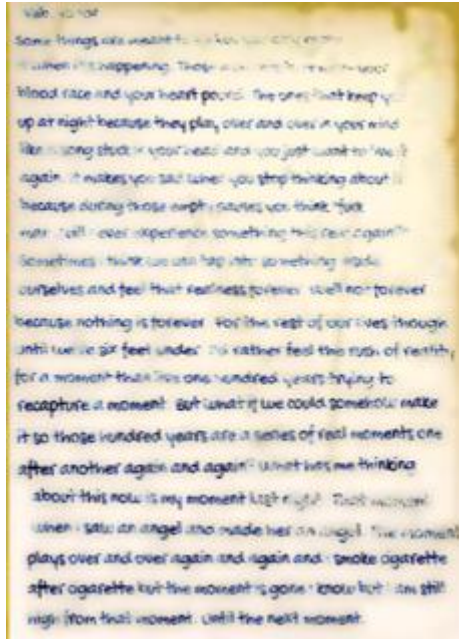 Some things are meant to
when it's happening. Those your
blood race and your heart pound. The ones that keep you
up at night because they play over and over in your mind
like a song stuck in your head and you just want to live it
again. It makes you sad when you stop thinking about it
because during those empty pauses you think "fuck
man will I ever experience something this real again?"
Sometimes I think we can tap into something inside
ourselves and feel that realness forever. Well not forever
because nothing is forever. For the rest of our lives though
until we're six feet under. I'd rather feel this rush of reality
for a moment than live one hundred years trying to
recapture a moment. But what if we could somehow make
it so those hundred years are a series of real moments one
after another again and again? What has me thinking
about this now is my moment last night. That moment
when I saw an angel and made her an angel. The moment
plays over and over again and again and I smoke cigarette
after cigarette but the moment is gone I know but I am still
high from that moment. Until the next moment.